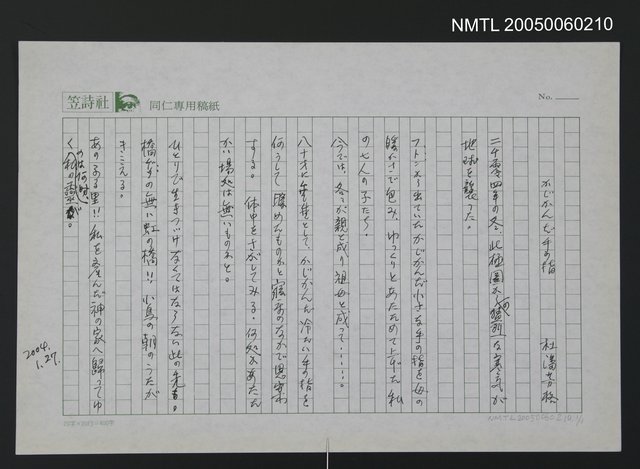 NMTL 20050060210
笠詩社
同仁専用稿紙
No.
かじかんだ手の指
杜潘芳格
二千零四年の冬、此極圏からの猛烈な寒気が
地球を襲った。
フトンから出ていたかじかんだ小さな手の指を母の
暖かさで包み、ゆっくりとあたためて上げた私
の七人の子たち。
今では、各々が親と成り祖母と成って……。
八十才に垂々として、かじかんだ冷たい手の指を
何うして暖めんものかと寝布のなかで思案
する。体中をさがしてみる。何処かあたたか
かい場処は無いものかと。
ひとりで生きつづけなくてはならない此の先き。
橋がらの無い虹の橋!! 小鳥の朝のうたが
きこえる。
あのふる里!! 私を産んだ神の家へ歸ってゆ
くのは何時か 私の靈が。
2004.
1.27.
NMTL20050060210